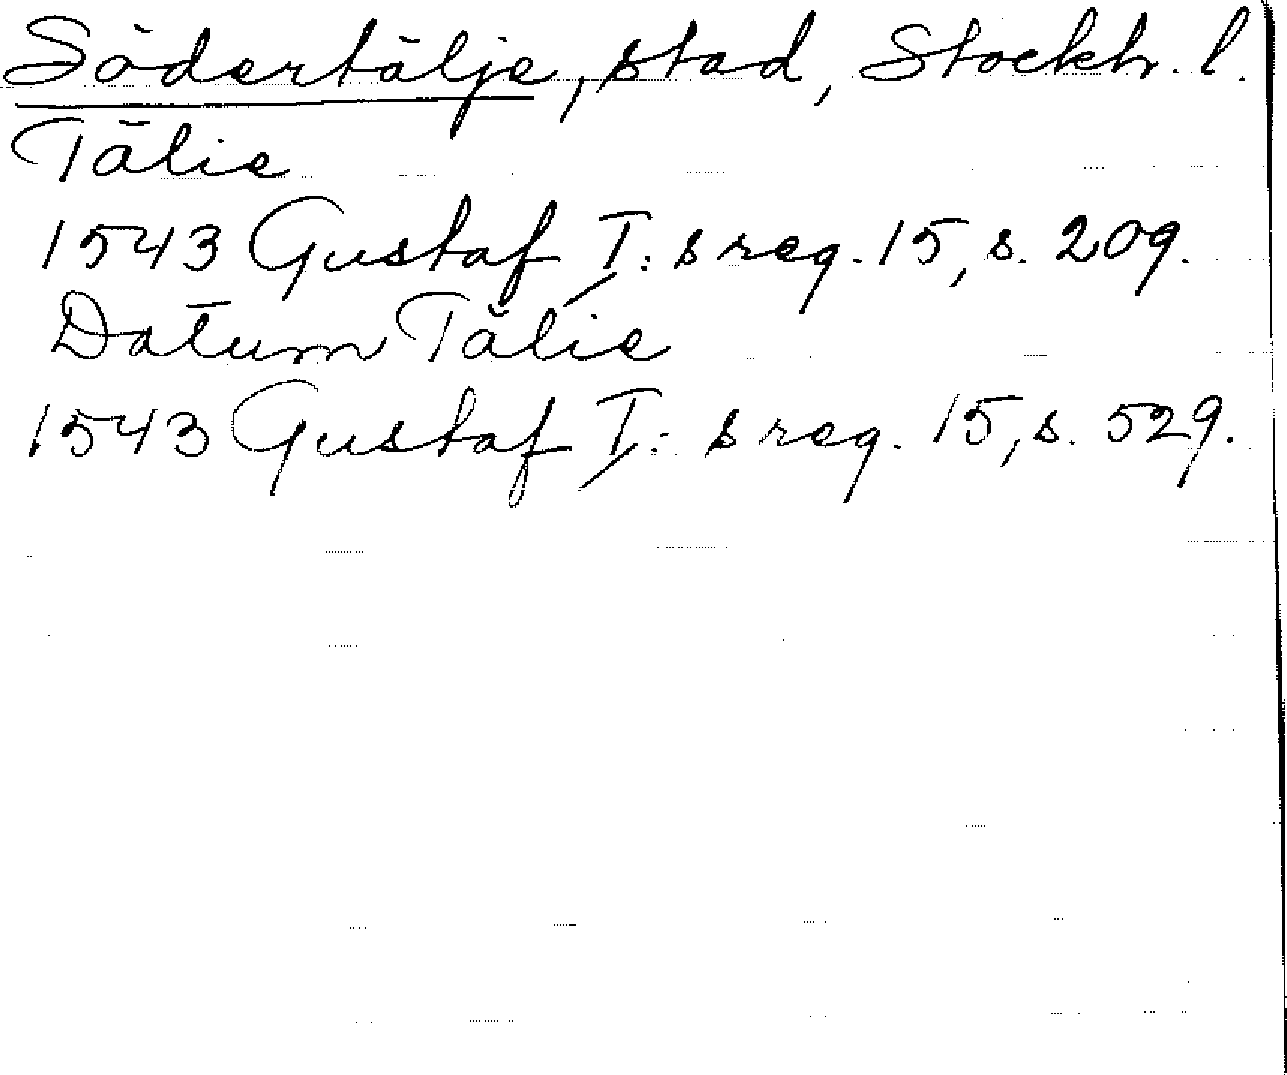 Södertälje, stad, Stockh. l.
Tälie
1543 Gustaf I: s reg. 15, s. 209.
Datum Tälie
1543 Gustaf I: s reg. 15, s. 529.